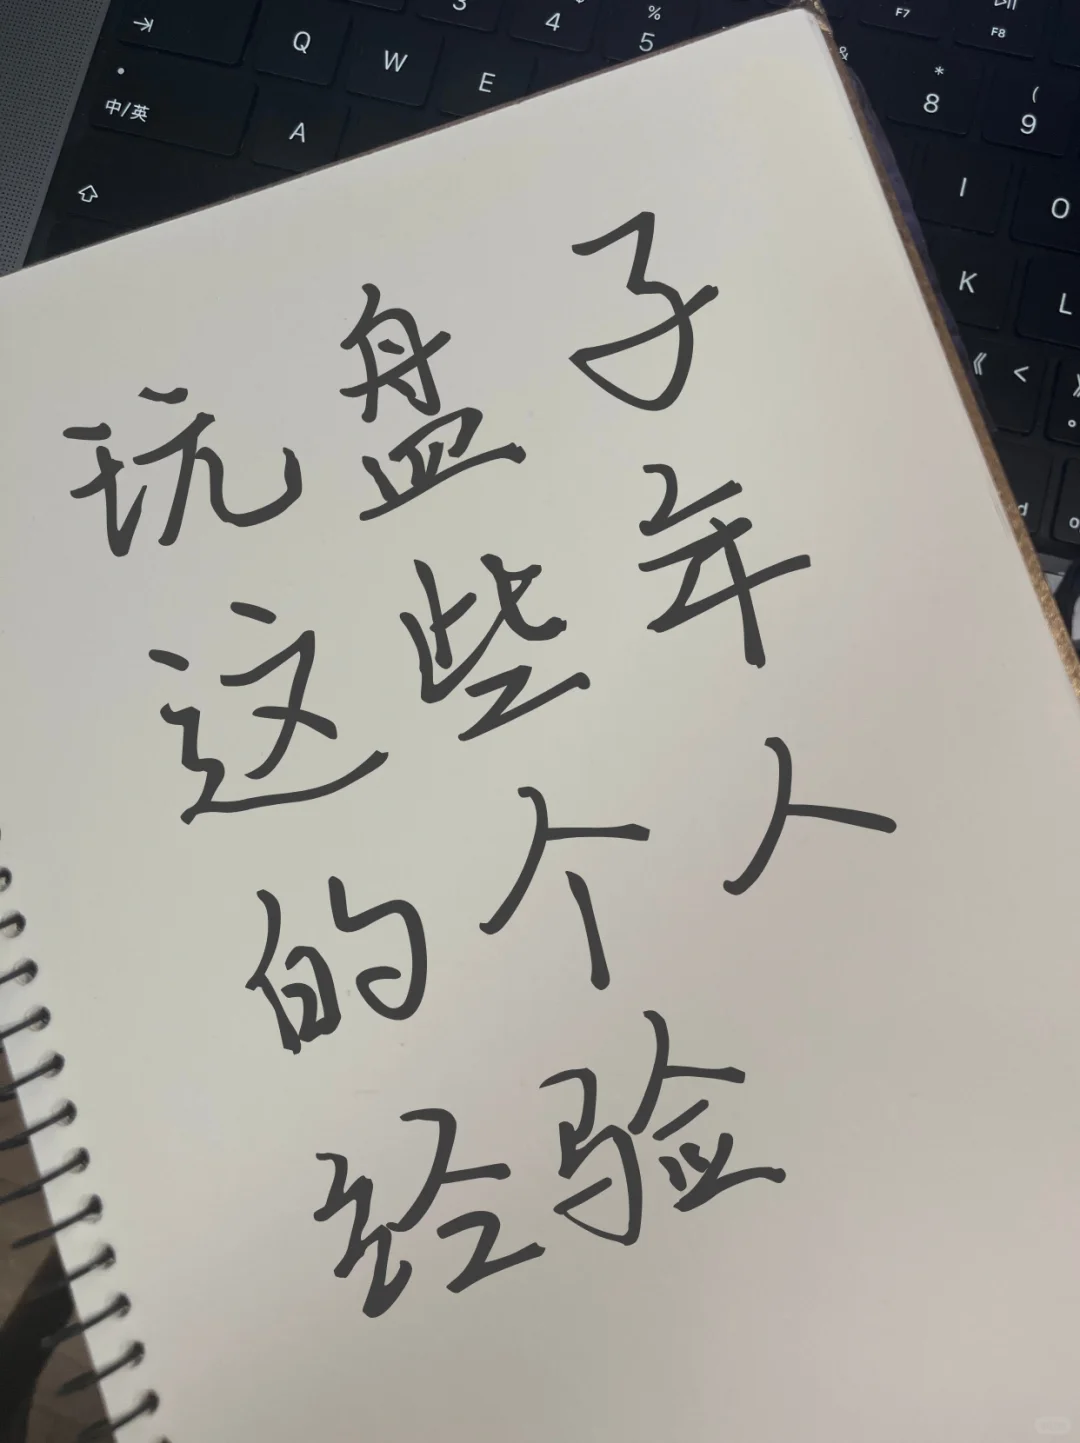 玩盘子
这些年
的个人
经验
→
Q
W
E
3
4
%
5
F7
F8
&
*
8
(
9
中/英
A
I
O
K
L
《 <
》
。